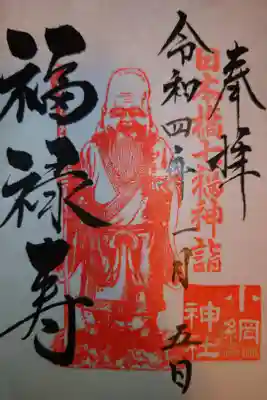 奉拝
日本橋七福神詣
令和四年一月五日
福禄寿
小網
神社